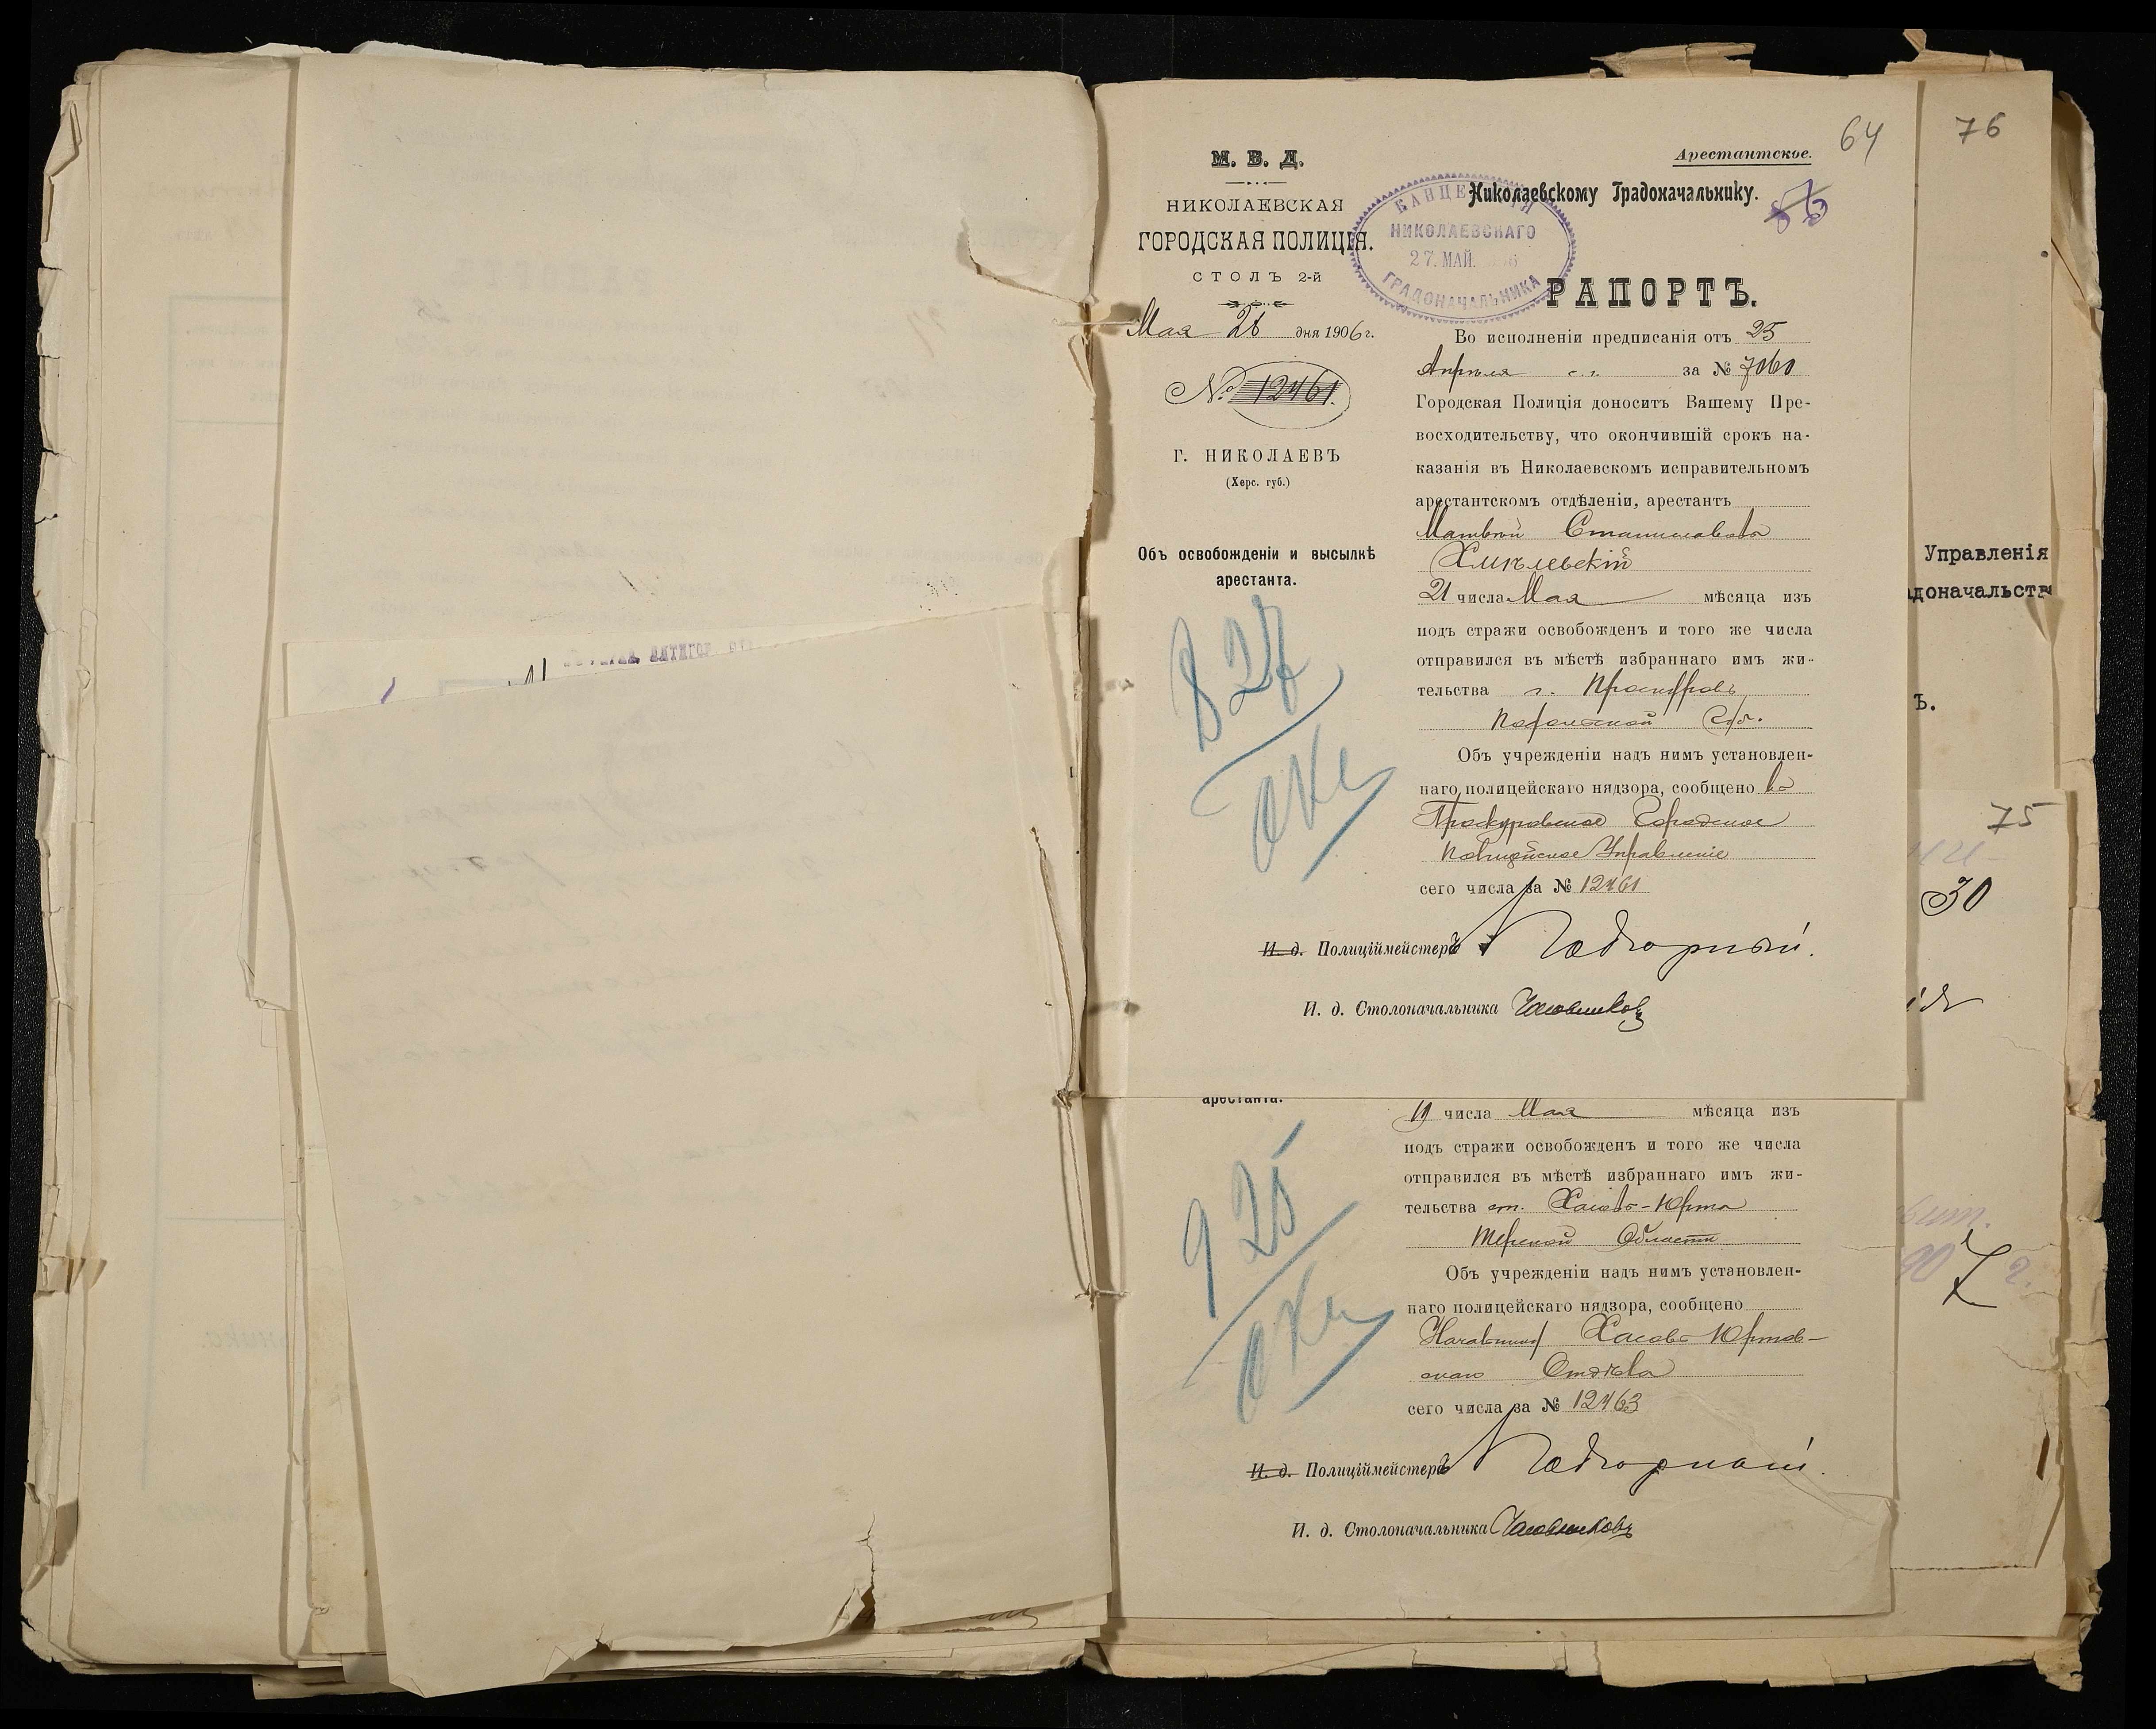 64
76
М. В. Д.
НИКОЛАЕВСКАЯ
ГОРОДСКАЯ ПОЛИЦІЯ.
СТОЛЪ 2-й
Мая 26 дня 1906 г.
№ 12461.
Г. НИКОЛАЕВЪ
(Херс. губ.)
Объ освобожденіи и высылкѣ
арестанта.
827
Арестантское.
Николаевскому Градоначальнику.
КАНЦЕЛЯРІИ
НИКОЛАЕВСКАГО
27. МАЙ.
ГРАДОНАЧАЛЬНИКА
РАПОРТЪ.
Во исполненіи предписанія отъ 25
Апрѣля с. г. за № 7060
Городская Полиція доноситъ Вашему Пре-
восходительству, что окончившій срокъ на-
казанія въ Николаевскомъ исправительномъ
арестантскомъ отдѣленіи, арестантъ
Матвѣй Станиславовъ
Хмѣлевскій
21 числа Мая мѣсяца изъ
подъ стражи освобожденъ и того же числа
отправился въ мѣстѣ избраннаго имъ жи-
тельства г. Проскуровъ
Подольской Губ.
Объ учрежденіи надъ нимъ установлен-
наго полицейскаго нядзора, сообщено въ
Проскуровское Городское
Полицейское Управленіе
сего числа за № 12461
И. д. Полиціймейстеръ Подгорный.
И. д. Столоначальника
арестанта.
925
19 числа Мая мѣсяца изъ
подъ стражи освобожденъ и того же числа
отправился въ мѣстѣ избраннаго имъ жи-
тельства ст. Хасавъ-Юртъ
Терской Области
Объ учрежденіи надъ нимъ установлен-
наго полицейскаго нядзора, сообщено
Начальнику Хасавъ-Юртов-
скаго Отдѣла
сего числа за № 12463
И. д. Полиціймейстеръ Подгорный.
И. д. Столоначальника
Управленія
адоначальства
Ъ.
75
30